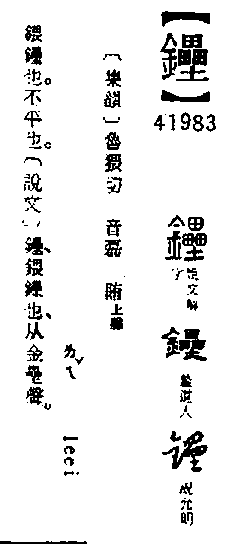 【鑸】
41983
鑸 說文解字
鑸 道人
鑸 祝允明
〔集韻〕魯猥切 音磊 賄上聲
ㄌㄟˇ leei
鍡鑸也。不平也。〔說文〕鑸、鍡鑸也、从金壘聲。